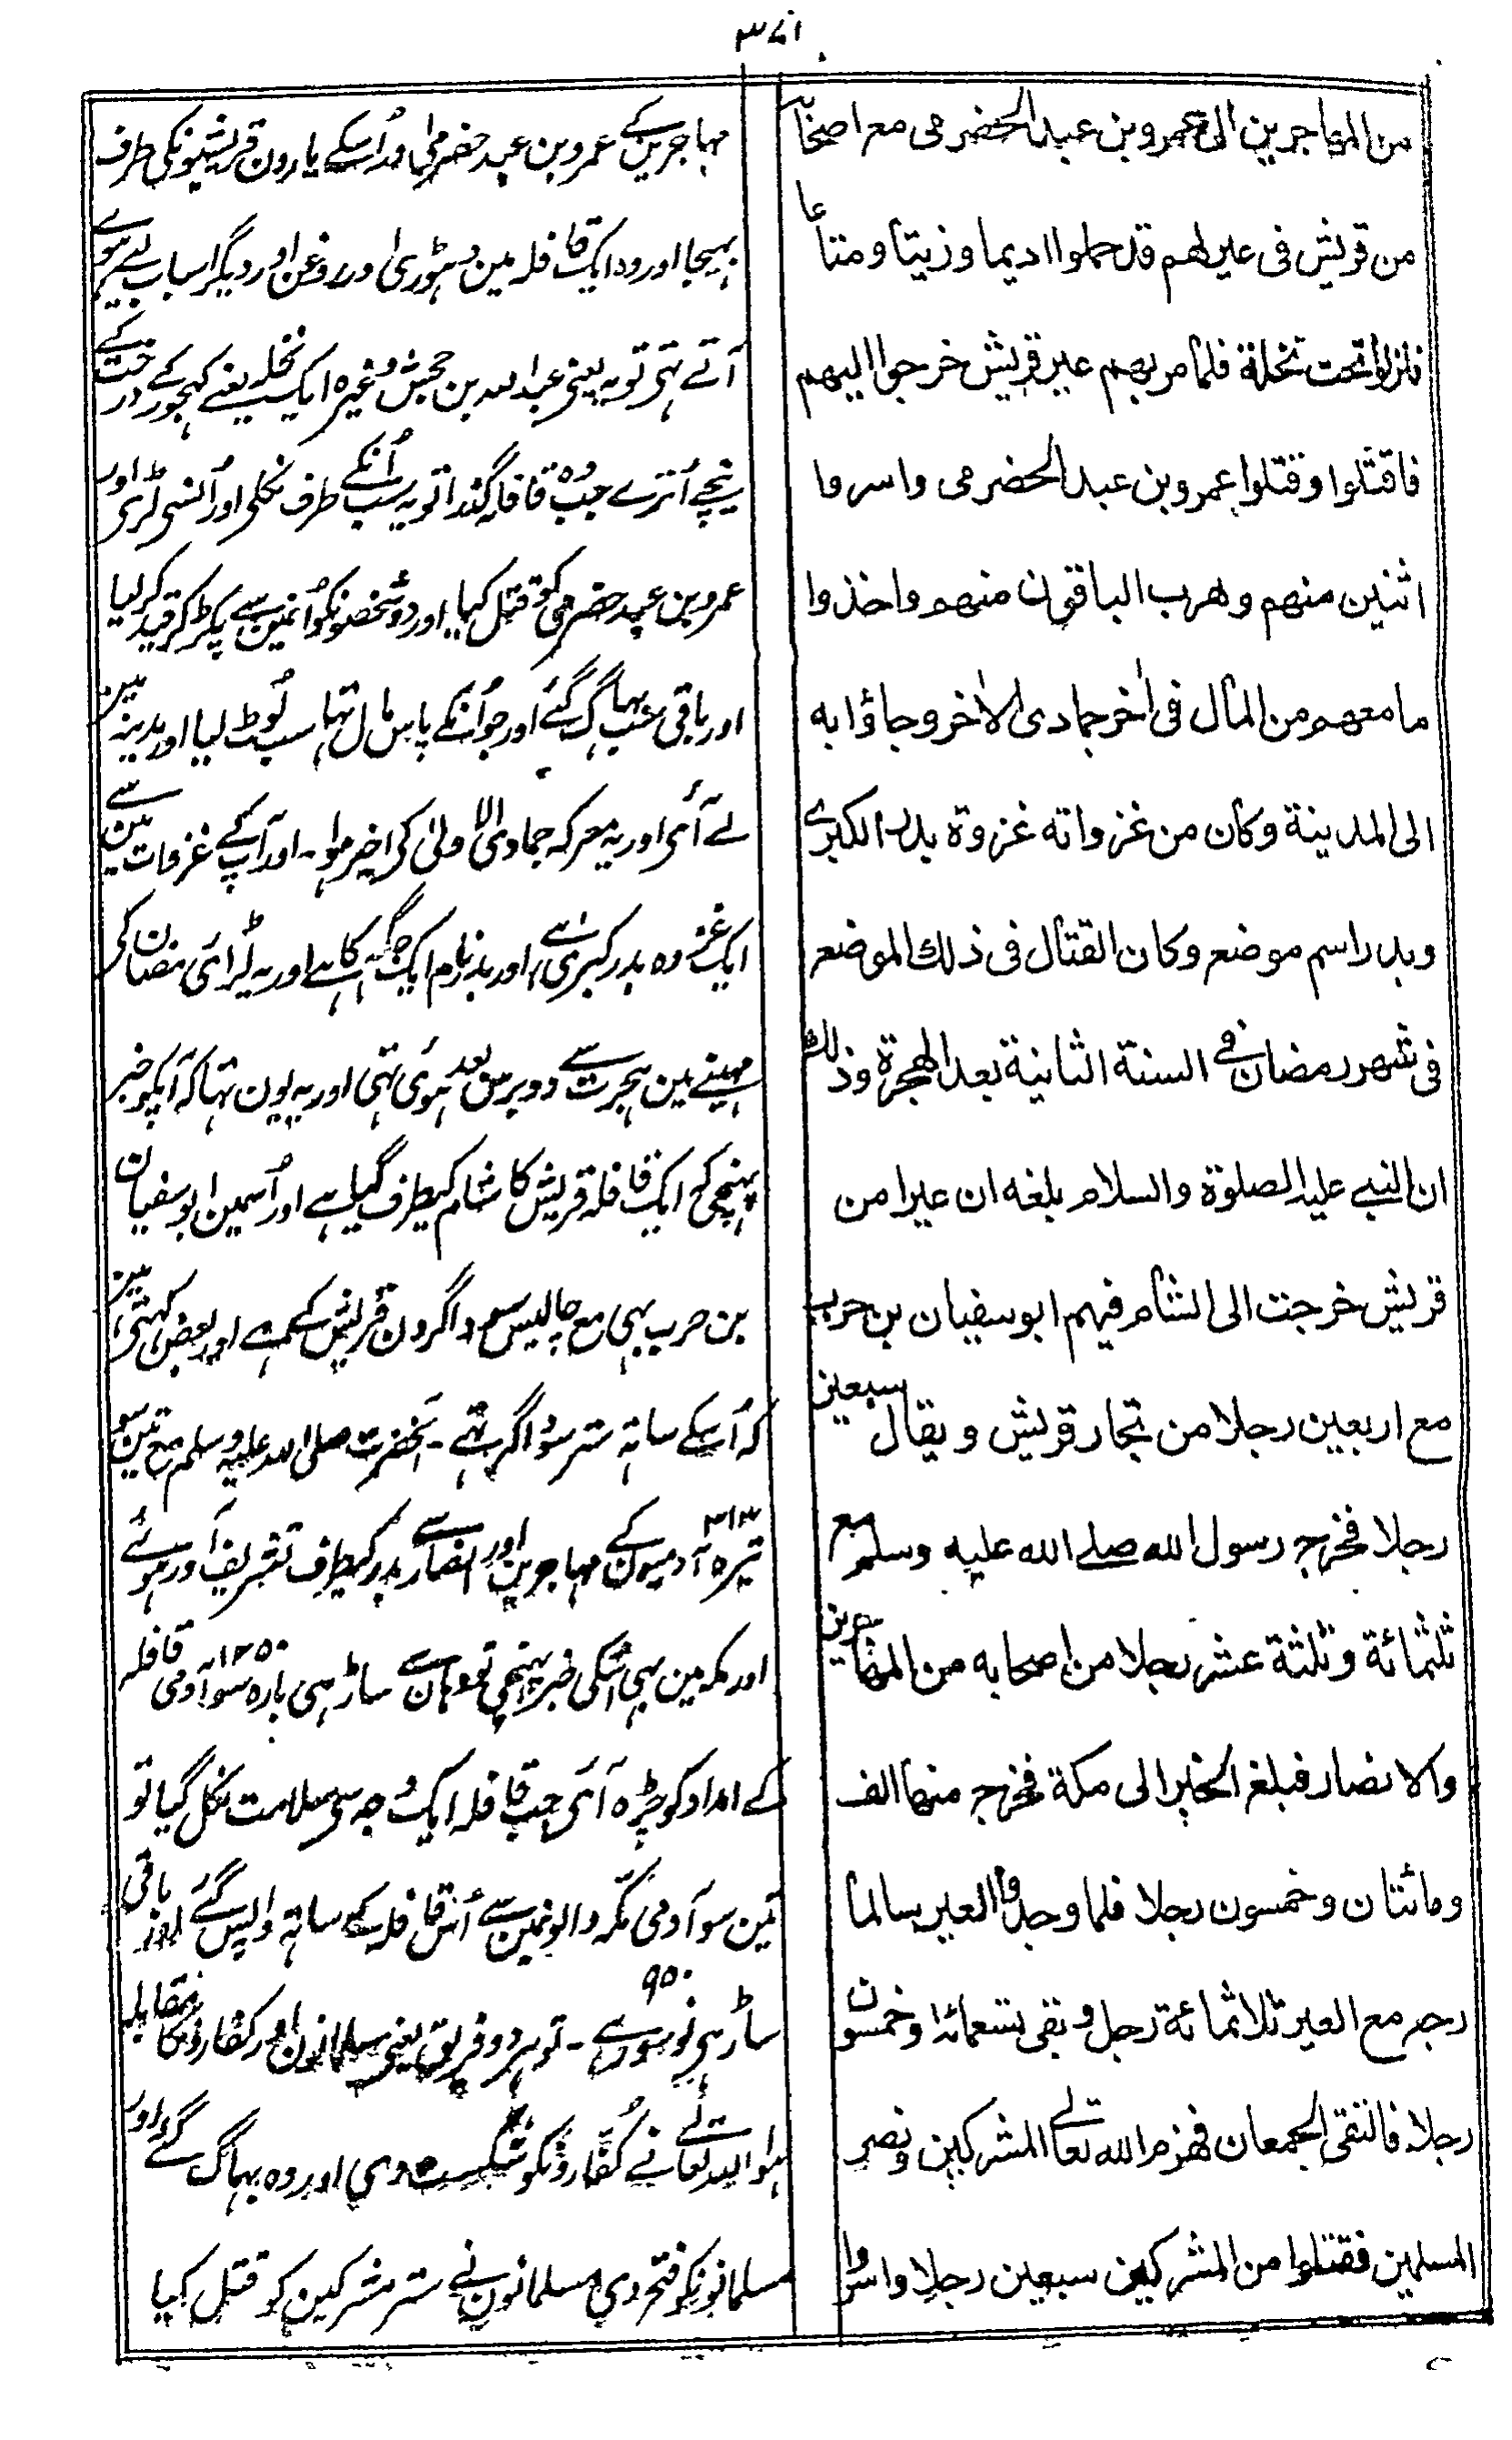 ٣٧١
من المهاجرين الى عمرو بن عبد الحضرمى مع اصحابه
من قريش فى عير لهم قد حملوا اديما وزيتا ومتاعا
فنزلوا تحت نخلة فلما مر بهم عير قريش خرجوا اليهم
فاقتلوا وقتلوا عمرو بن عبد الحضرمى واسروا
اثنين منهم وهرب الباقون منهم واخذوا
ما معهم من المال فى اخر جمادى الاخر وجاؤا به
الى المدينة وكان من غزواته غزوة بدر الكبرى
وبدر اسم موضع وكان القتال فى ذلك الموضع
فى شهر رمضان فى السنة الثانية بعد الهجرة وذلك
ان النبى عليه الصلوة والسلام بلغه ان عيرا من
قريش خرجت الى الشام فيهم ابو سفيان بن حرب
مع اربعين رجلا من تجار قريش ويقال سبعين
رجلا فخرج رسول الله صلى الله عليه وسلم مع
ثلثمائة وثلثة عشر رجلا من اصحابه من المهاجرين
والانصار فبلغ الخبر الى مكة فخرج منها الف
ومائتان وخمسون رجلا فلما وجدوا العير سالما
رجع مع العير ثلاثمائة رجل وبقى تسعمائة وخمسون
رجلا فالتقى الجمعان فهزم الله تعالى المشركين ونصر
المسلمين فقتلوا من المشركين سبعين رجلا واسروا
مہاجرین کے عمرو بن عبد حضرمی اور اُسکے یارون قریشیونکی طرف
بہیجا اور وہ ایک قافلہ مین دہوڑی اور روغن اور دیگر اسباب لیے ہوے
آتے تہی تو یہ یعنی عبد اللہ بن جحش وغیرہ ایک نخلہ یعنے کہجور کے درخت کے
نیچے اُترے جب وہ قافلہ گذرا تو یہ سب اُنکے طرف نکلی اور اُنسی لڑی اور
عمرو بن عبد حضرمی کو قتل کیا اور دو شخصونکو اُنمین سے پکڑ کر قید کر لیا
اور باقی سب بہاگ گئے اور جو اُنکے پاس مال تہا سب لُوٹ لیا اور مدینہ مین
لے آئی اور یہ معرکہ جمادی الاولیٰ کی اخیر ہوا۔ اور آپ کے غزوات مین سے
ایک غزوہ بدر کبری ہے، اور بدر نام ایک جگہ کا ہے اور یہ لڑائی رمضان کی
مہینے مین ہجرت سے دو برس بعد ہوئی تہی اور یہ یون تہا کہ آپکو خبر
پہنچی کہ ایک قافلہ قریش کا شام کیطرف گیا ہے اور اُسمین ابو سفیان
بن حرب بہی مع چالیس سوداگرون قریش کے ہے اور بعض کہتی ہین
کہ اُسکے ساتہ ستر سوداگر تہے۔ آنحضرت صلی اللہ علیہ وسلم مع تین سو
تیرہ ٣١٣ آدمیون کے مہاجرین اور انصار سے بدر کیطرف تشریف آور ہوئے
اور مکہ مین بہی اسکی خبر پہنچی تو وہان سے ساڑہی بارہ سو ١٢٥٠ آدمی قافلہ
کے امداد کو چڑہ آئی جب قافلہ ایک وجہ سی سلامت نکل گیا تو
تین سو آدمی مکہ والونمین سے اُس قافلہ کے ساتہ واپس گئے اور باقی
ساڑہی نو سو ٩٥٠ رہے۔ تو ہر دو فریق یعنی مسلمانون اور کفارونکا مقابلہ
ہوا اللہ تعالےٰ نے کُفّارونکو شکست دی اور وہ بہاگ گئے اور
مسلمانونکو فتح دی مسلمانون نے ستر مشرکین کو قتل کیا